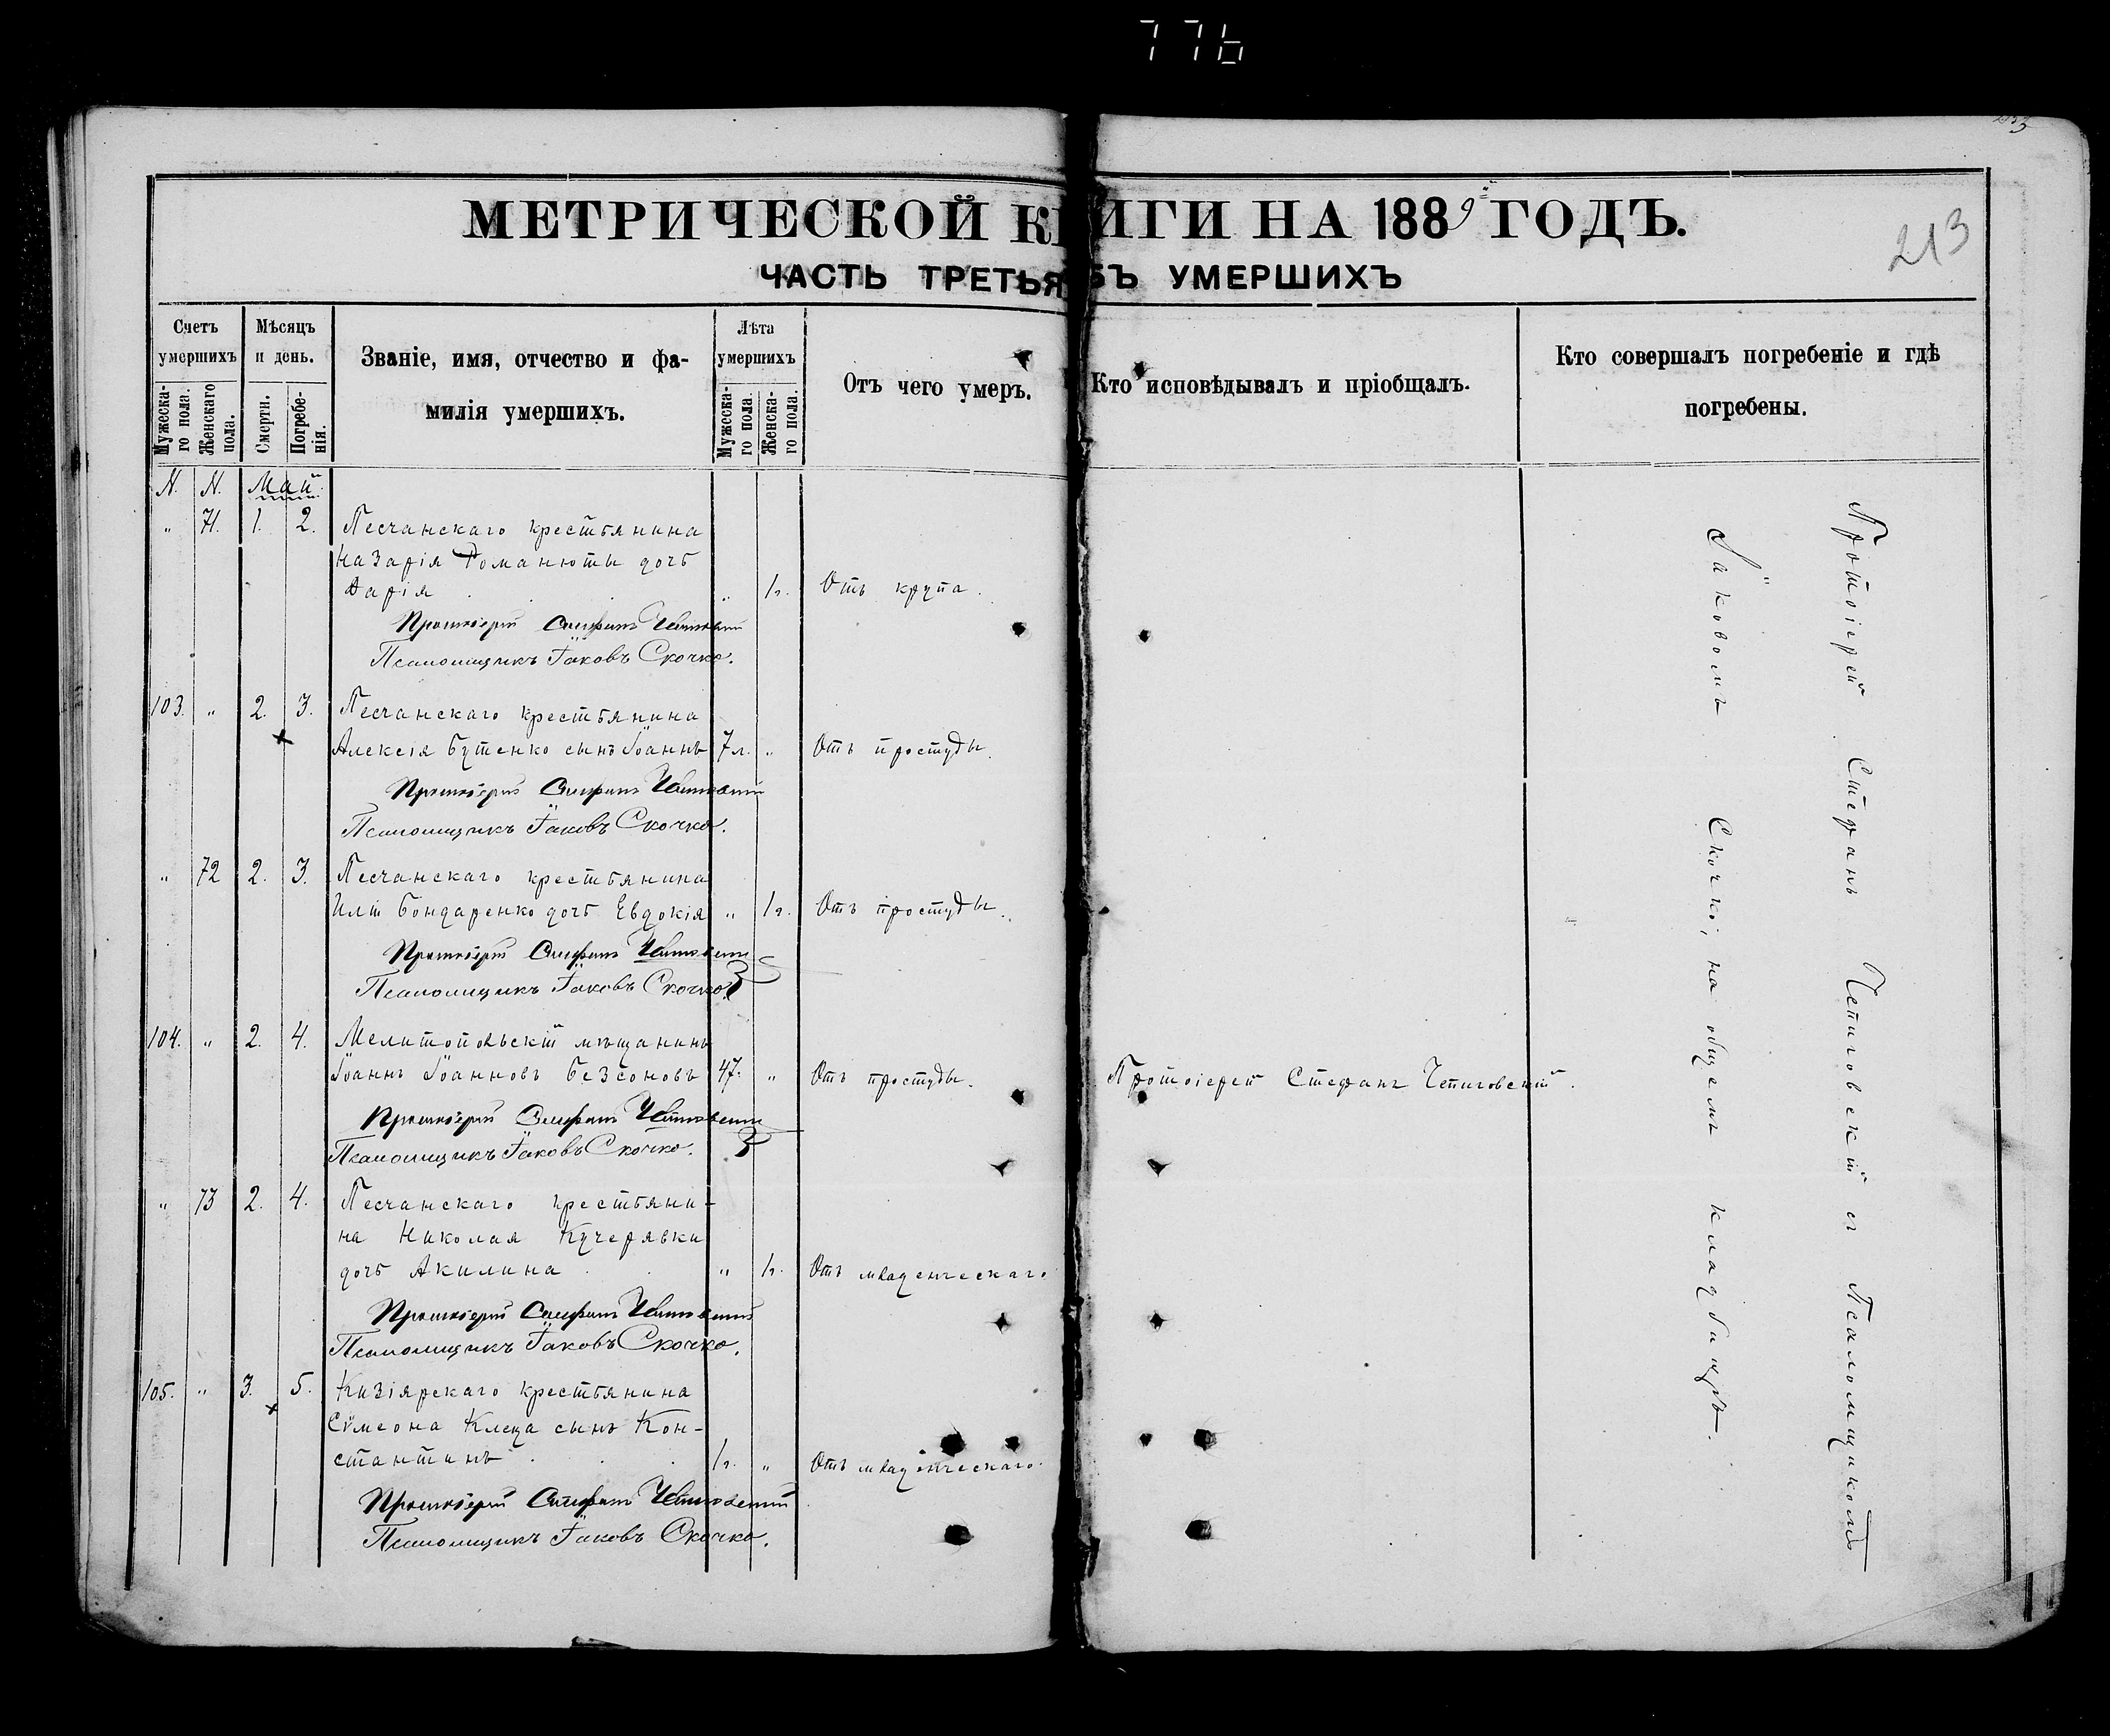 776
МЕТРИЧЕСКОЙ КНИГИ НА 1889 ГОДЪ.
213
ЧАСТЬ ТРЕТЬЯ БЪ УМЕРШИХЪ
Счетъ умершихъ
Мужеска-го пола.
Женскаго пола.
Мѣсяцъ и день.
Смерти.
Погребе-нія.
Званіе, имя, отчество и фа-
милія умершихъ.
Лѣта умершихъ
Мужеска-го пола.
Женска-го пола.
Отъ чего умеръ.
Кто исповѣдывалъ и пріобщалъ.
Кто совершалъ погребеніе и гдѣ
погребены.
N. N. Май
" 71. 1. 2. Песчанскаго крестьянина
Назарія Романюты дочь
Дарія " 1г. Отъ крупа.
Протоіерей Стефанъ Чепиговскій
Псаломщикъ Іаковъ Скочко.
103. " 2. 3. Песчанскаго крестьянина
Алексія Бутенко сынъ Іоаннъ 7л. " Отъ простуды.
Протоіерей Стефанъ Чепиговскій
Псаломщикъ Іаковъ Скочко.
" 72 2. 3. Песчанскаго крестьянина
Иліи Бондаренко дочь Евдокія " 1г. Отъ простуды.
Протоіерей Стефанъ Чепиговскій
Псаломщикъ Іаковъ Скочко.
104. " 2. 4. Мелитопольскій мѣщанинъ
Іоаннъ Іоанновъ Безсоновъ 47. " Отъ простуды. Протоіерей Стефанъ Чепиговскій.
Протоіерей Стефанъ Чепиговскій
Псаломщикъ Іаковъ Скочко.
" 73 2. 4. Песчанскаго крестьяни-
на Николая Кучерявки
дочь Акилина " 1г. Отъ младенческаго
Протоіерей Стефанъ Чепиговскій
Псаломщикъ Іаковъ Скочко.
105. " 3. 5. Кизіярскаго крестьянина
Сѵмеона Клеца сынъ Кон-
стантинъ 1г. " Отъ младенческаго.
Протоіерей Стефанъ Чепиговскій
Псаломщикъ Іаковъ Скочко.
Протоіерей Стефанъ Чепиговскій съ Псаломщикомъ
Іаковомъ Скочко, на общемъ кладбищѣ.